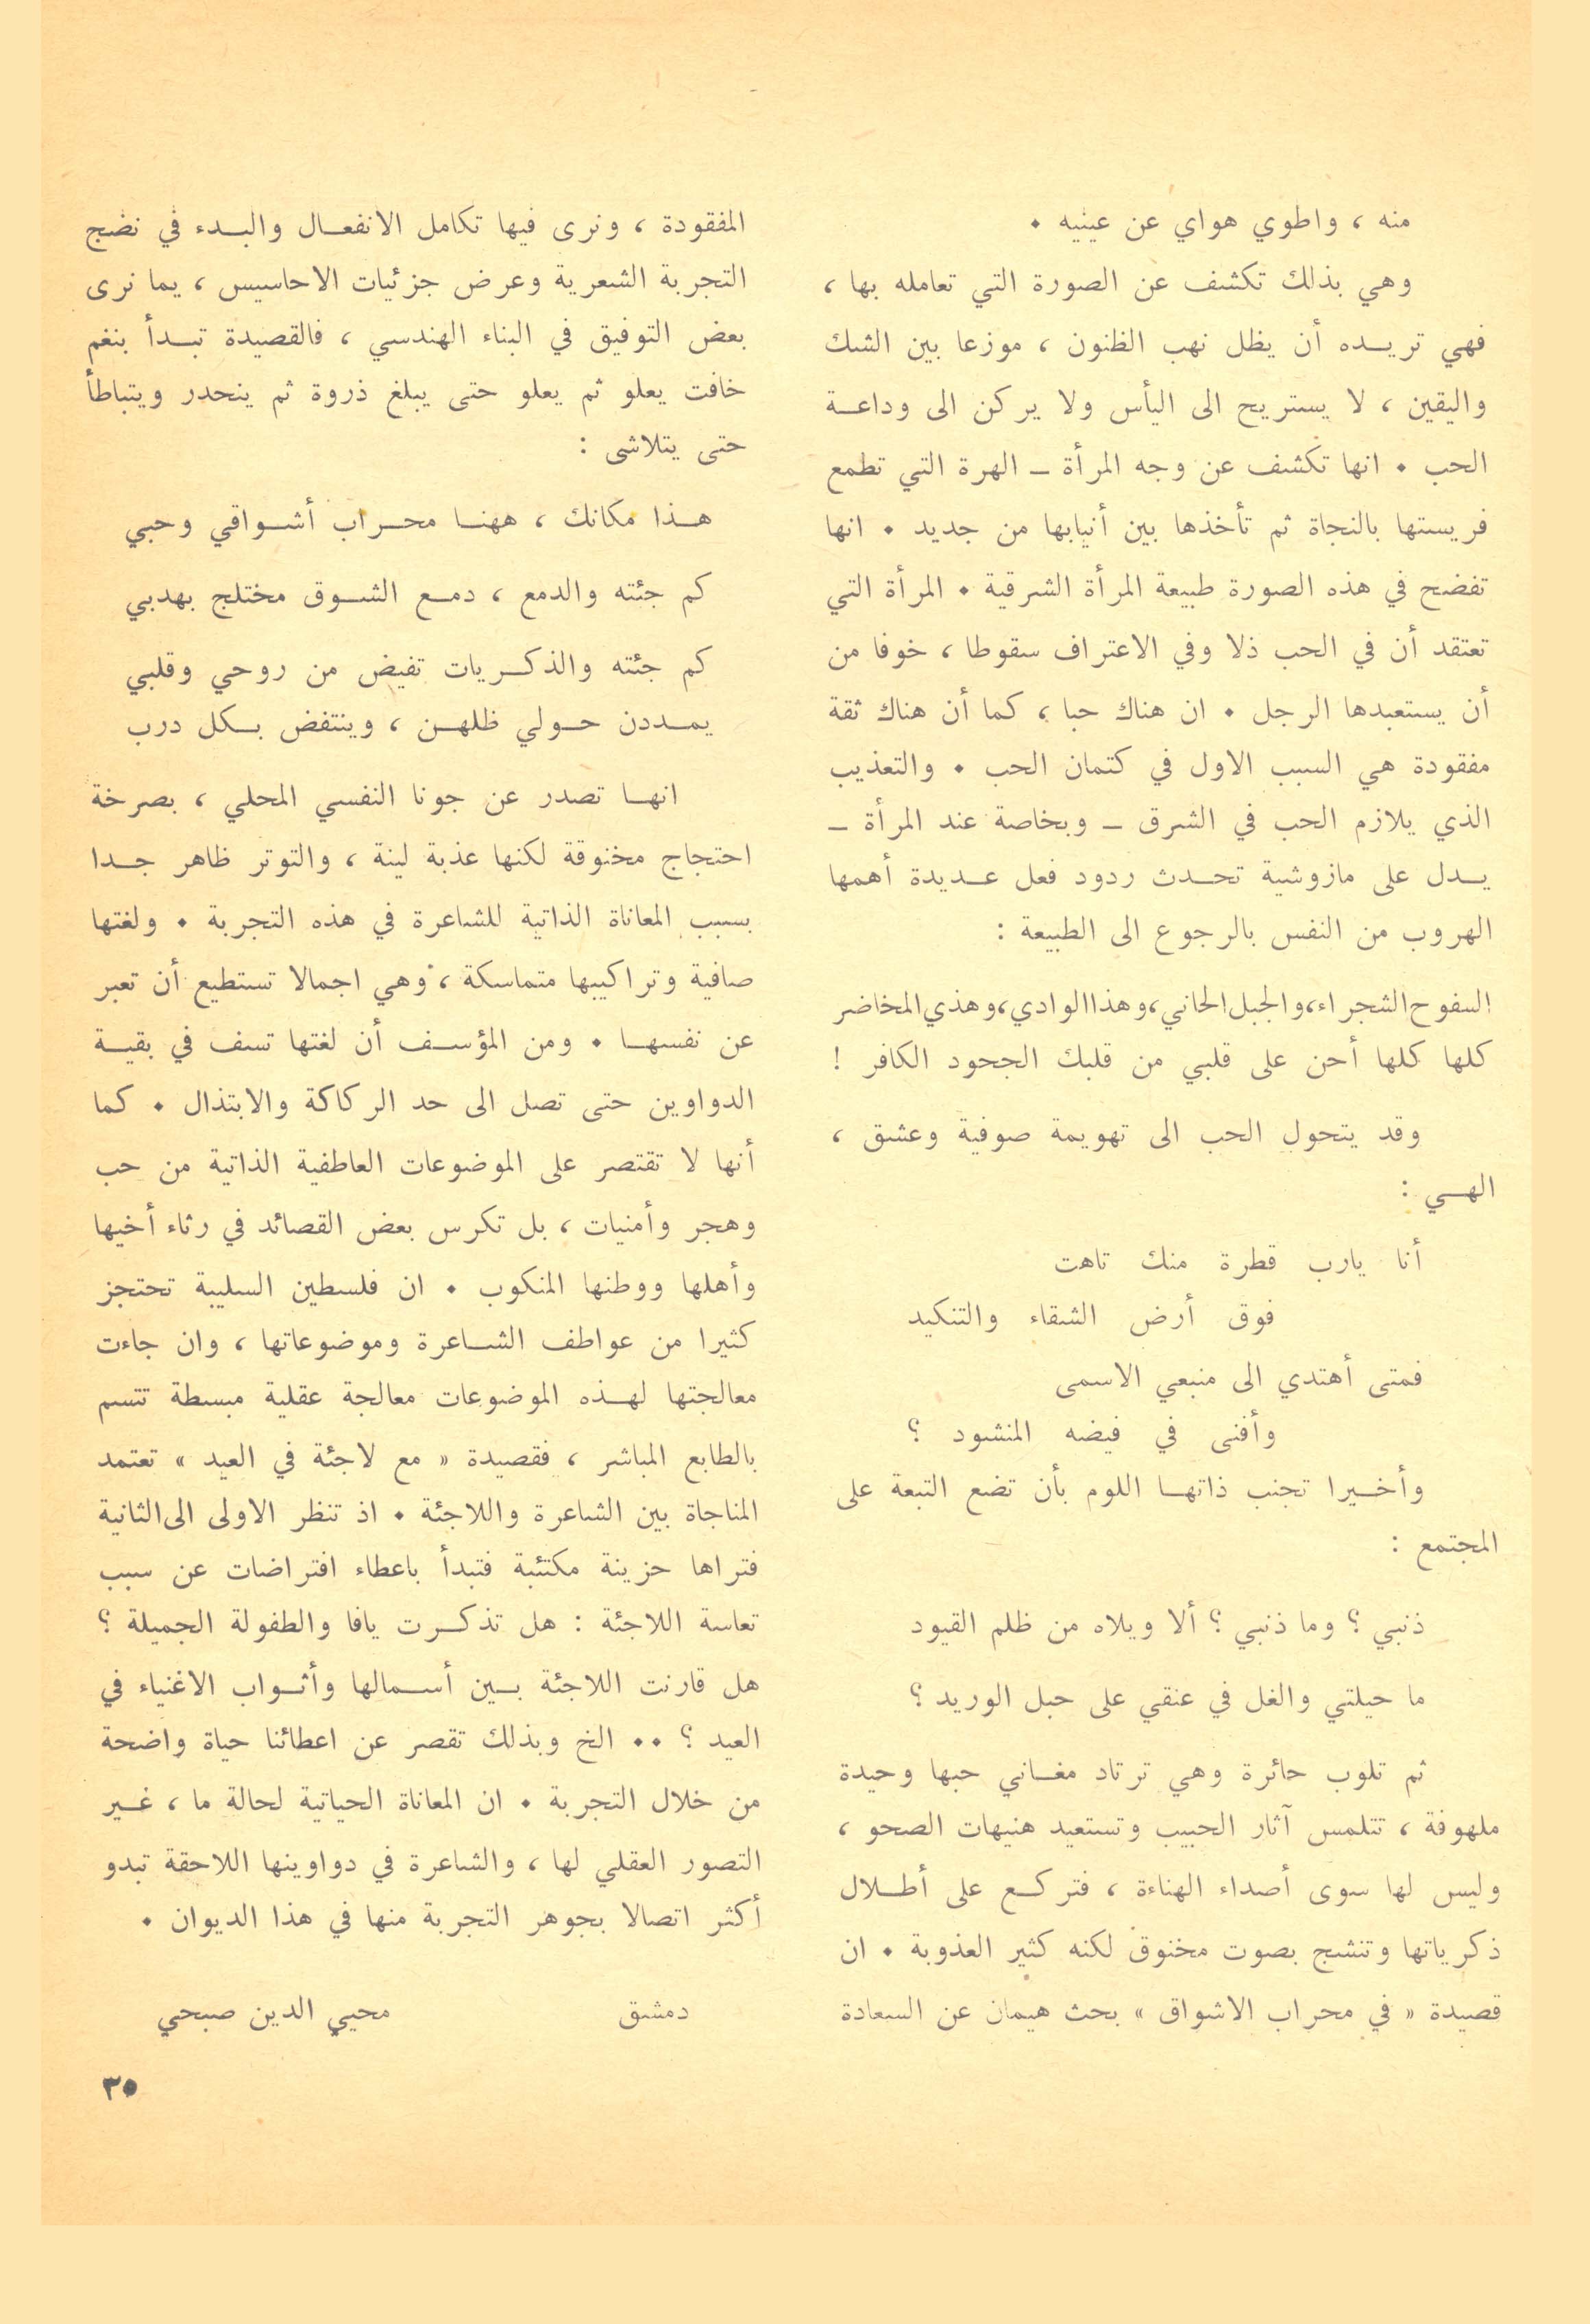 منه ، واطوي هواي عن عينيه .
وهي بذلك تكشف عن الصورة التي تعامله بها ،
فهي تريـــده أن يظل نهب الظنون ، موزعا بين الشك
واليقين ، لا يستريح الى اليأس ولا يركن الى وداعـــة
الحب . انها تكشف عن وجه المرأة ــ الهرة التي تطمع
فريستها بالنجاة ثم تأخذها بين أنيابها من جديد . انها
تفضح في هذه الصورة طبيعة المرأة الشرقية . المرأة التي
تعتقد أن في الحب ذلا وفي الاعتراف سقوطا ، خوفا من
أن يستعبدها الرجل . ان هناك حبا ، كما أن هناك ثقة
مفقودة هي السبب الاول في كتمان الحب . والتعذيب
الذي يلازم الحب في الشرق ــ وبخاصة عند المرأة ــ
يـــدل على مازوشية تحـــدث ردود فعل عـــديدة أهمها
الهروب من النفس بالرجوع الى الطبيعة :
السفوح الشجراء، والجبل الحاني، وهذا الوادي، وهذي المخاضر
كلها كلها أحن على قلبي من قلبك الجحود الكافر !
وقد يتحول الحب الى تهويمة صوفية وعشق ،
الهـــي :
أنا يارب قطرة منك تاهت
فوق أرض الشقاء والتنكيد
فمتى أهتدي الى منبعي الاسمى
وأفنى في فيضه المنشود ؟
وأخـــيرا تجنب ذاتهـــا اللوم بأن تضع التبعة على
المجتمع :
ذنبي ؟ وما ذنبي ؟ ألا ويلاه من ظلم القيود
ما حيلتي والغل في عنقي على حبل الوريد ؟
ثم تلوب حائرة وهي ترتاد مغـــاني حبها وحيدة
ملهوفة ، تتلمس آثار الحبيب وتستعيد هنيهات الصحو ،
وليس لها سوى أصداء الهناءة ، فتركـــع على أطـــلال
ذكرياتها وتنشج بصوت مخنوق لكنه كثير العذوبة . ان
قصيدة « في محراب الاشواق » بحث هيمان عن السعادة
المفقودة ، ونرى فيها تكامل الانفعـــال والبـــدء في نضج
التجربة الشعرية وعرض جزئيات الاحاسيس ، يما نرى
بعض التوفيق في البناء الهندسي ، فالقصيدة تبـــدأ بنغم
خافت يعلو ثم يعلو حتى يبلغ ذروة ثم ينحدر ويتباطأ
حتى يتلاشى :
هـــذا مكانك ، ههنـــا محـــراب أشـــواقي وحبي
كم جئته والدمع ، دمـــع الشـــوق مختلج بهدبي
كم جئته والذكـــريات تفيض من روحي وقلبي
يمـــددن حـــولي ظلهـــن ، وينتفض بـــكل درب
انهـــا تصدر عن جونا النفسي المحلي ، بصرخة
احتجاج مخنوقة لكنها عذبة لينة ، والتوتر ظاهر جـــدا
بسبب المعاناة الذاتية للشاعرة في هذه التجربة . ولغتها
صافية وتراكيبها متماسكة ، وهي اجمالا تستطيع أن تعبر
عن نفسهـــا . ومن المؤســـف أن لغتها تسف في بقيـــة
الدواوين حتى تصل الى حد الركاكة والابتذال . كما
أنها لا تقتصر على الموضوعات العاطفية الذاتية من حب
وهجر وأمنيات ، بل تكرس بعض القصائد في رثاء أخيها
وأهلها ووطنها المنكوب . ان فلسطين السليبة تحتجز
كثيرا من عواطف الشـــاعرة وموضوعاتها ، وان جاءت
معالجتها لهـــذه الموضوعات معالجة عقلية مبسطة تتسم
بالطابع المباشر ، فقصيدة « مع لاجئة في العيد » تعتمد
المناجاة بين الشاعرة واللاجئة . اذ تنظر الاولى الى الثانية
فتراها حزينة مكتئبة فتبدأ باعطاء افتراضات عن سبب
تعاسة اللاجئة : هل تذكـــرت يافا والطفولة الجميلة ؟
هل قارنت اللاجئة بـــين أســـمالها وأثـــواب الاغنياء في
العيد ؟ .. الخ وبذلك تقصر عن اعطائنا حياة واضحة
من خلال التجربة . ان المعاناة الحياتية لحالة ما ، غـــير
التصور العقلي لها ، والشاعرة في دواوينها اللاحقة تبدو
أكثر اتصالا بجوهر التجربة منها في هذا الديوان .
دمشق محيي الدين صبحي
٣٥